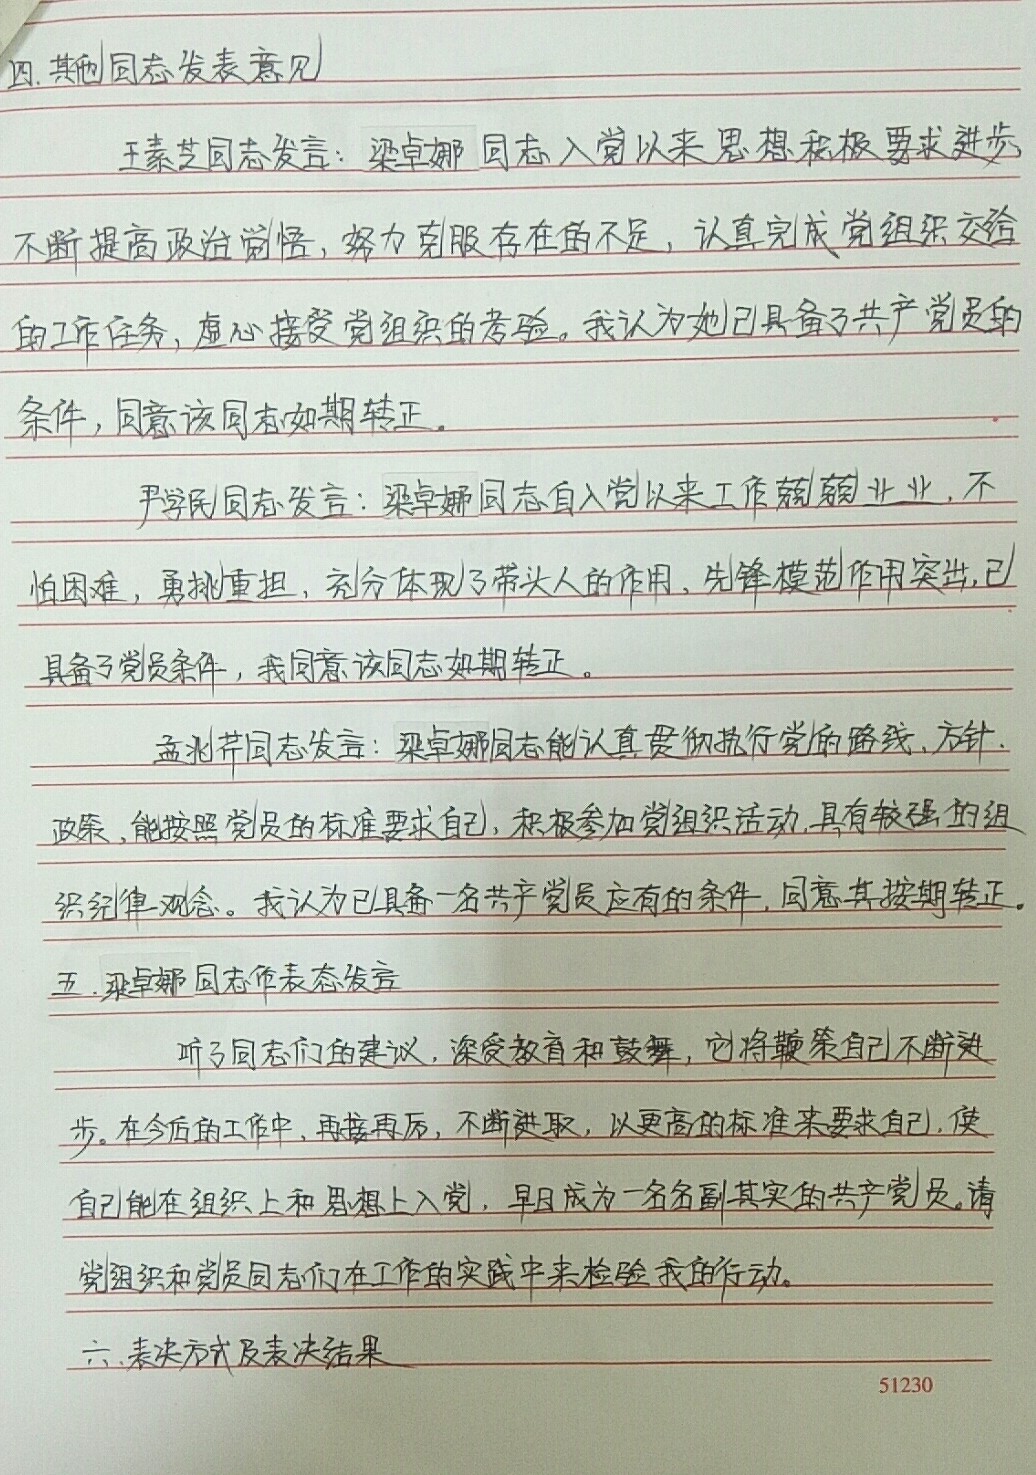 四.其他同志发表意见
王素芝同志发言：梁卓娜同志入党以来思想积极要求进步,
不断提高政治觉悟，努力克服存在的不足，认真完成党组织交给
的工作任务，虚心接受党组织的考验。我认为她已具备了共产党员的
条件，同意该同志如期转正。
尹学民同志发言：梁卓娜同志自入党以来工作兢兢业业，不
怕困难，勇挑重担、充分体现了带头人的作用、先锋模范作用突出,已
具备了党员条件，我同意该同志如期转正。
孟兆芹同志发言：梁卓娜同志能认真贯彻执行党的路线、方针、
政策，能按照党员的标准要求自己，积极参加党组织活动,具有较强的组
织纪律观念。我认为已具备一名共产党员应有的条件，同意其按期转正。
五.梁卓娜同志作表态发言
听了同志们的建议，深受教育和鼓舞，它将鞭策自己不断进
步。在今后的工作中、再接再厉，不断进取，以更高的标准来要求自己，使
自己能在组织上和思想上入党，早日成为一名名副其实的共产党员。请
党组织和党员同志们在工作的实践中来检验我的行动。
六、表决方式及表决结果
51230